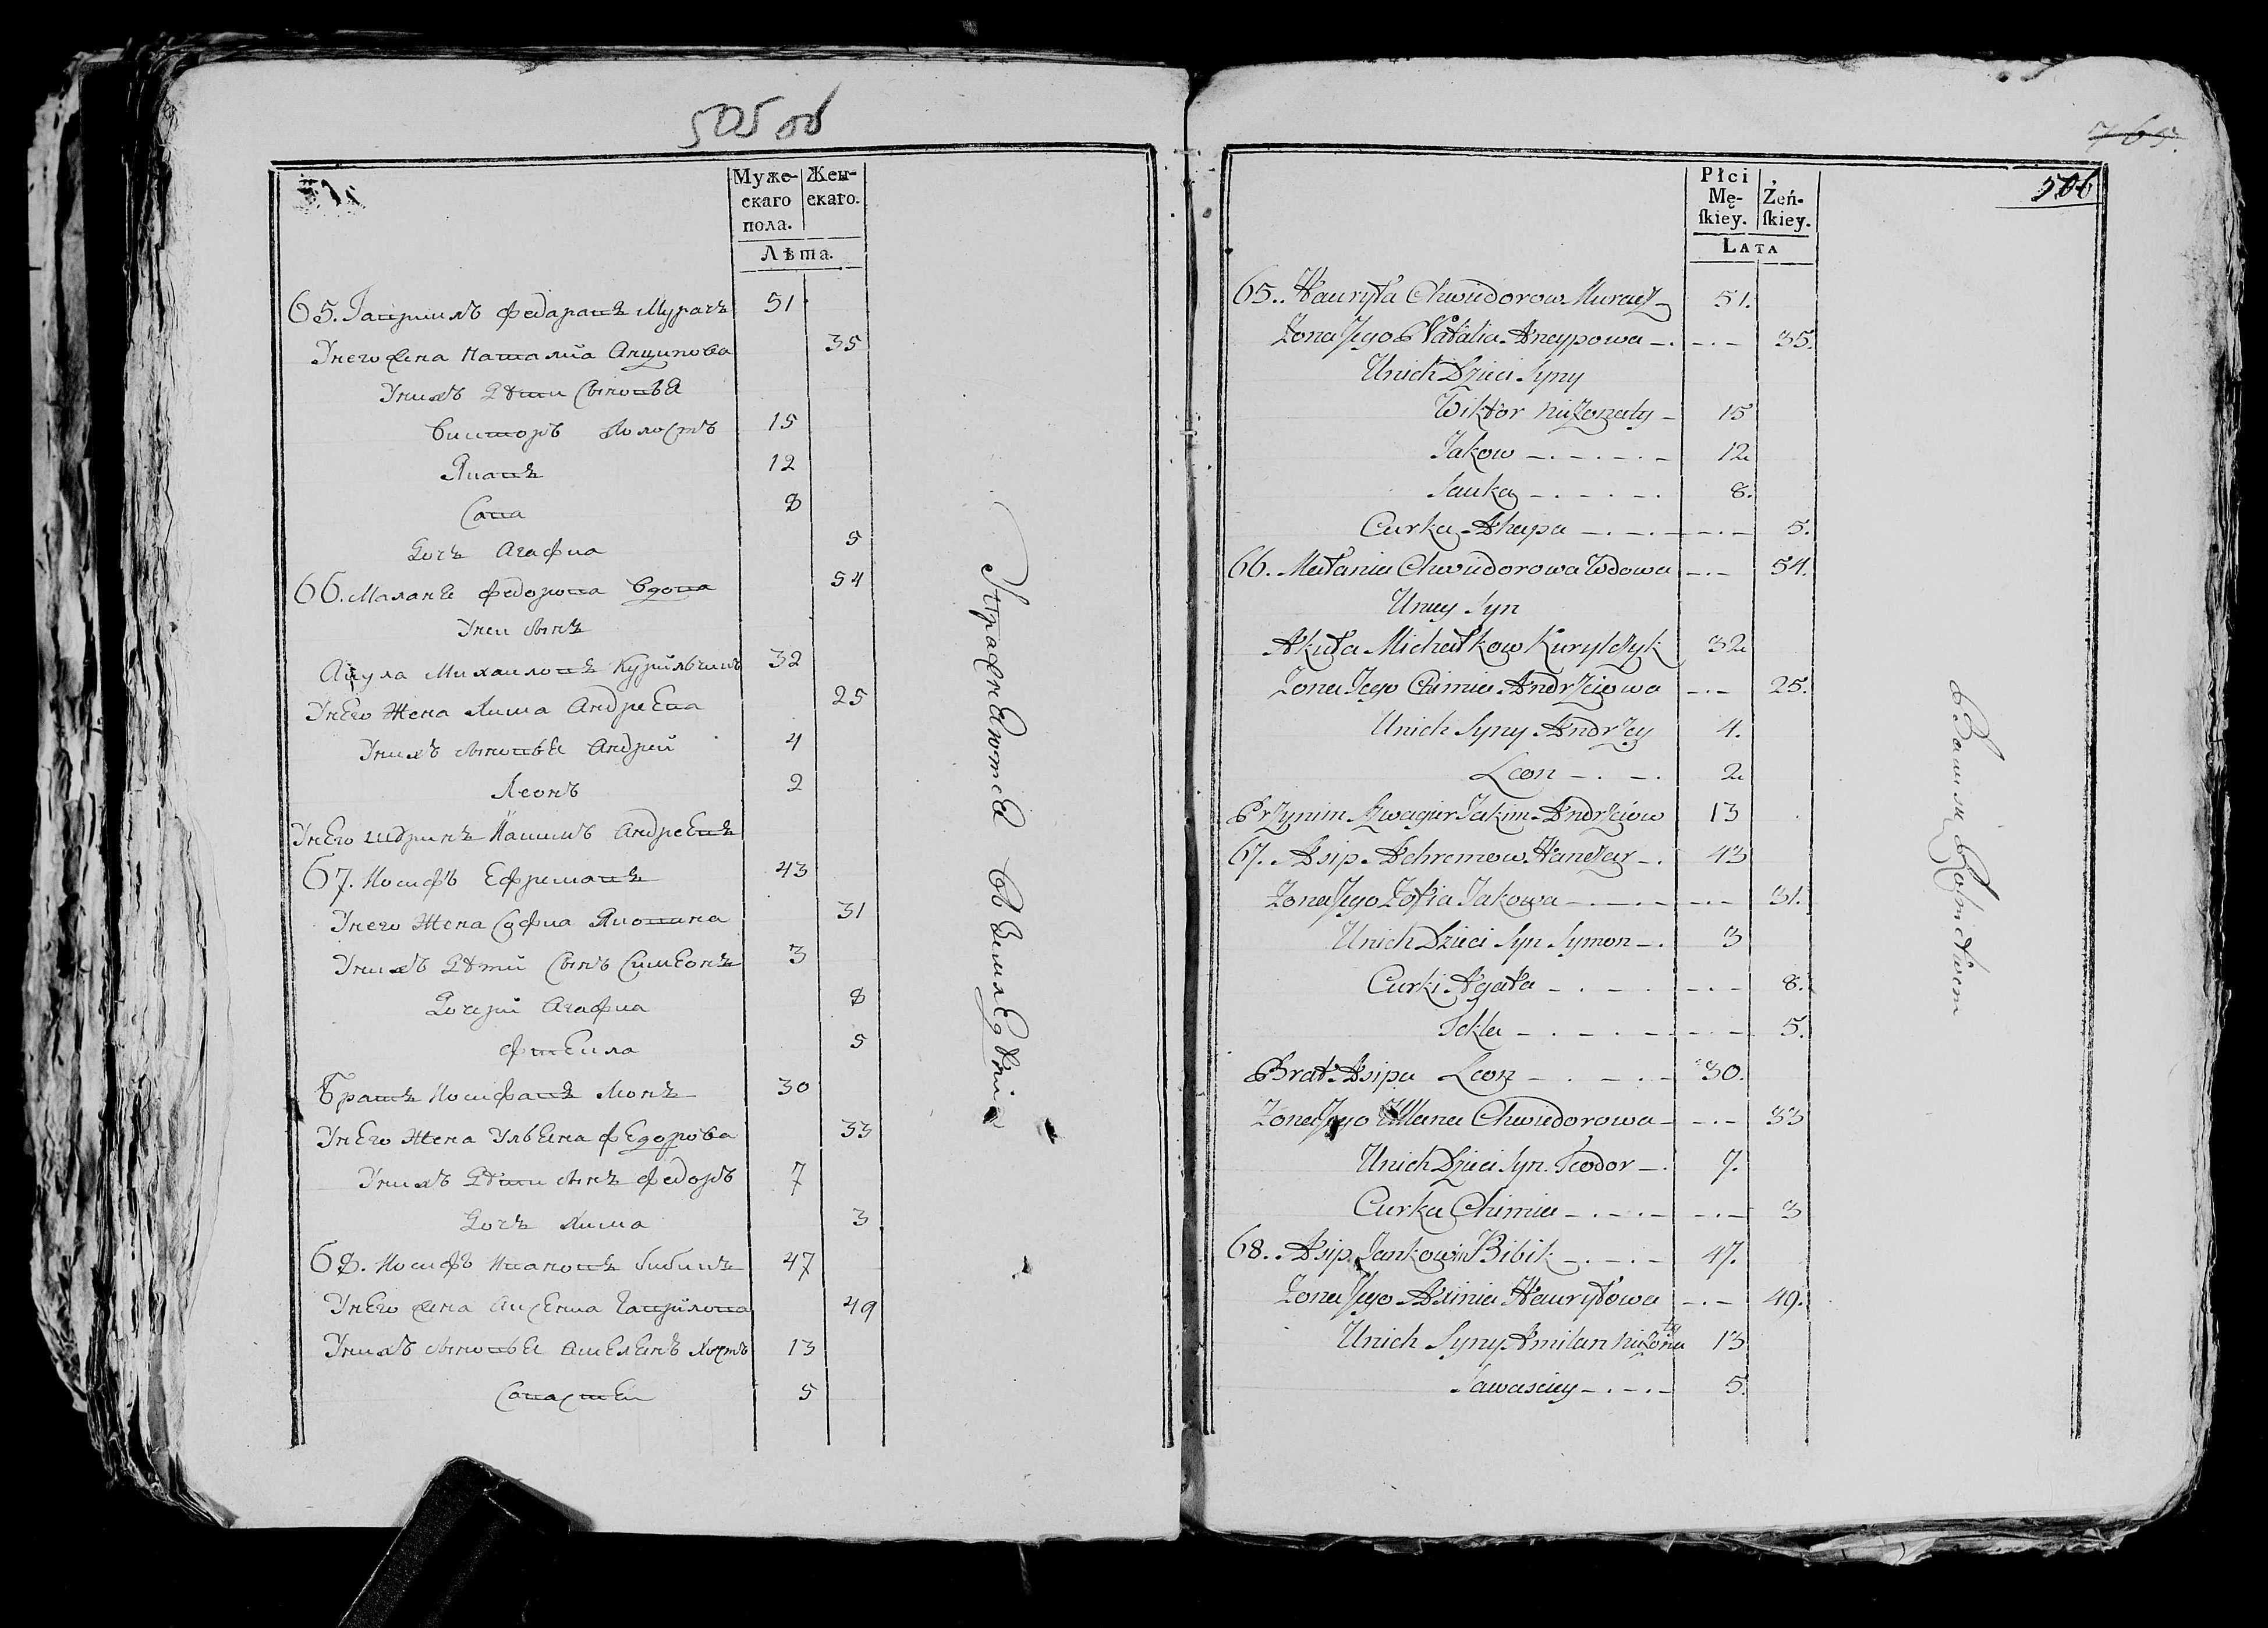 505 об
Муже-
скаго
пола.
Жен-
скаго.
Лѣта.
65. Гаврилъ Федаравъ Мурачъ 51
Унего жена Наталиа Анципова 35
Унихъ дѣти сыновья
Викторъ холостъ 15
Яковъ 12
Сава 8
Дочь Агафиа 5
66. Маланья Федорова вдова 54
Унеи сынъ
Акула Михаиловъ Курильчикъ 32
Унего жена Хима Андреева 25
Унихъ сыновья Андрей 4
Леонъ 2
Унего шуринъ Якимъ Андреевъ
67. Иосифъ Ефремовъ 43
Унего жена София Яковлева 31
Унихъ дѣти сынъ Симеонъ 3
Дочери Агафиа 8
Фтекла 5
Братъ Иосифавъ Леонъ 30
Унего жена Ульяна Федорова 33
Унихъ дѣти сынъ Федоръ 7
Дочь Хима 3
68. Иосифъ Ивановъ Бибикъ 47
Унего жена Аксенiа Гаврилова 49
Унихъ сыновья Амельянъ холстъ 13
Савастей 5
765.
506
Płci
Mę-
ſkiey.
Żeń-
ſkiey.
LATA
65. Hauryła Chwiedorow Muracz 51.
Zona Jego Natalia Ancypowa 35.
Unich Dzieci Syny
Wiktor nieżonaty 15
Jakow 12
Sauka 8.
Curka Ahapa 5.
66. Małania Chwiedorowa Wdowa 54.
Uniey Syn
Akuła Michałkow Kurylczyk 32
Zona Jego Chimia Andrzeiowa 25.
Unich Syny Andrzey 4.
Leon 2
Przynim Szwagier Jakim Andrzeiów 13
67. Asip Achremow Hanczar 43
Zona Jego Zofia Jakowa 31.
Unich Dzieci Syn Symon 3
Curki Agata 8.
Tekla 5.
Brat Asipa Leon 30.
Zona Jego Ullana Chwiedorowa 33
Unich Dzieci Syn Teodor 7.
Curka Chimia 3
68. Asip Jankowi Bibik 47.
Zona Jego Axinia Hauryłowa 49.
Unich Syny Amilan nieżonaty 13
Sawasciey 5.